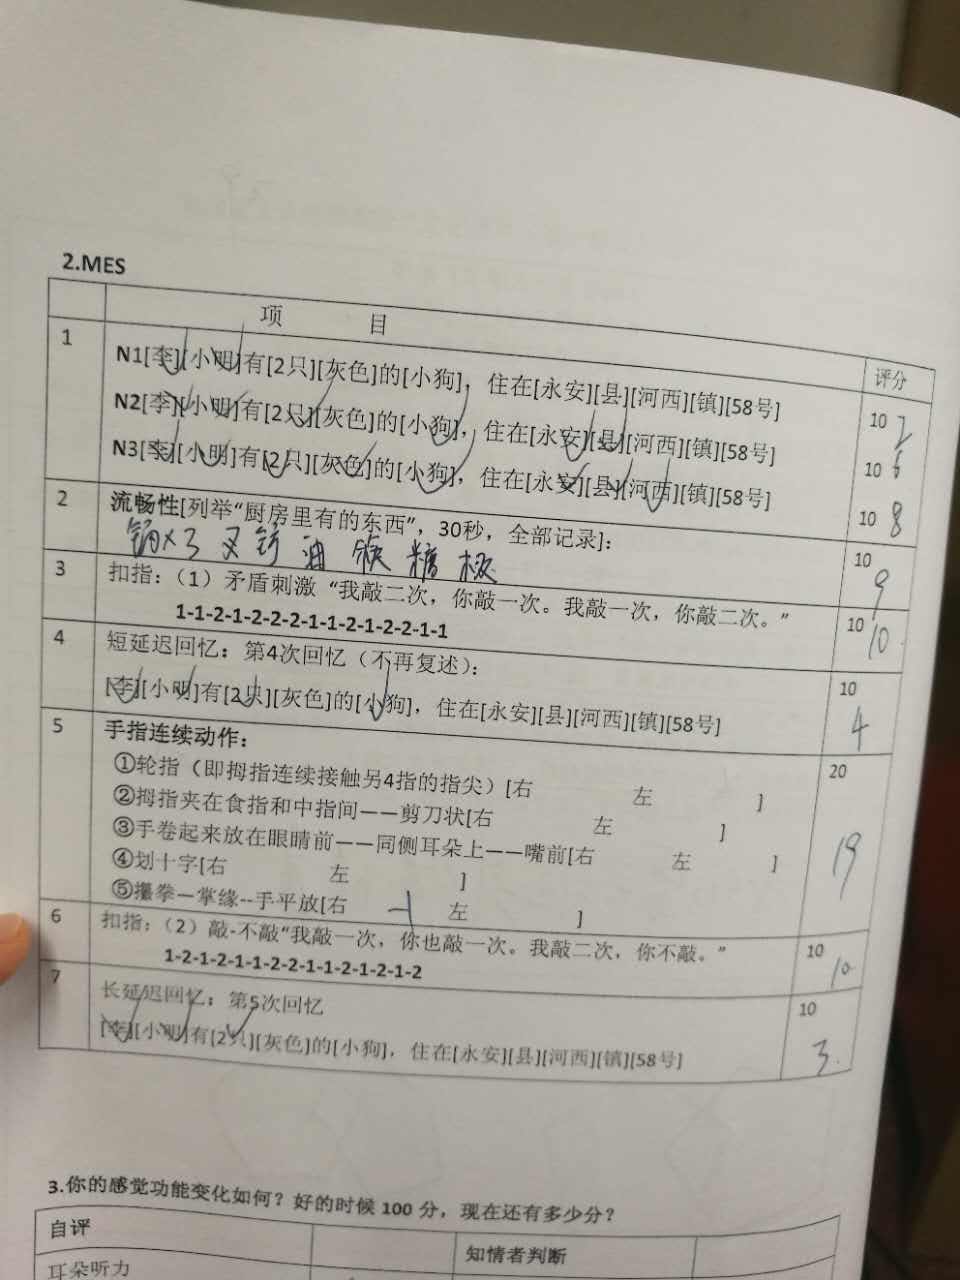 2.MES
项 目
评分
1
N1[李][小明]有[2只][灰色]的[小狗]，住在[永安][县][河西][镇][58号]
10 2
N2[李][小明]有[2只][灰色]的[小狗]，住在[永安][县][河西][镇][58号]
10 6
N3[李][小明]有[2只][灰色]的[小狗]，住在[永安][县][河西][镇][58号]
10 8
2
流畅性[列举“厨房里有的东西”，30秒，全部记录]：
10 9
锅 叉 油 糖
3
扣指：（1）矛盾刺激 “我敲二次，你敲一次。我敲一次，你敲二次。”
1-1-2-1-2-2-2-1-1-2-1-2-2-1-1
10 10
4
短延迟回忆：第4次回忆（不再复述）：
[李][小明]有[2只][灰色]的[小狗]，住在[永安][县][河西][镇][58号]
10 4
5
手指连续动作：
①轮指（即拇指连续接触另4指的指尖）[右 左 ]
②拇指夹在食指和中指间——剪刀状[右 左 ]
③手卷起来放在眼睛前——同侧耳朵上——嘴前[右 左 ]
④划十字[右 左 ]
⑤攥拳—掌缘--手平放[右 -1 左 ]
20 19
6
扣指：（2）敲-不敲“我敲一次，你也敲一次。我敲二次，你不敲。”
1-2-1-2-1-1-2-2-1-1-2-1-2-1-2
10 10
7
长延迟回忆：第5次回忆
[李][小明]有[2只][灰色]的[小狗]，住在[永安][县][河西][镇][58号]
10 3
3.你的感觉功能变化如何？好的时候 100 分，现在还有多少分？
自评 知情者判断
耳朵听力